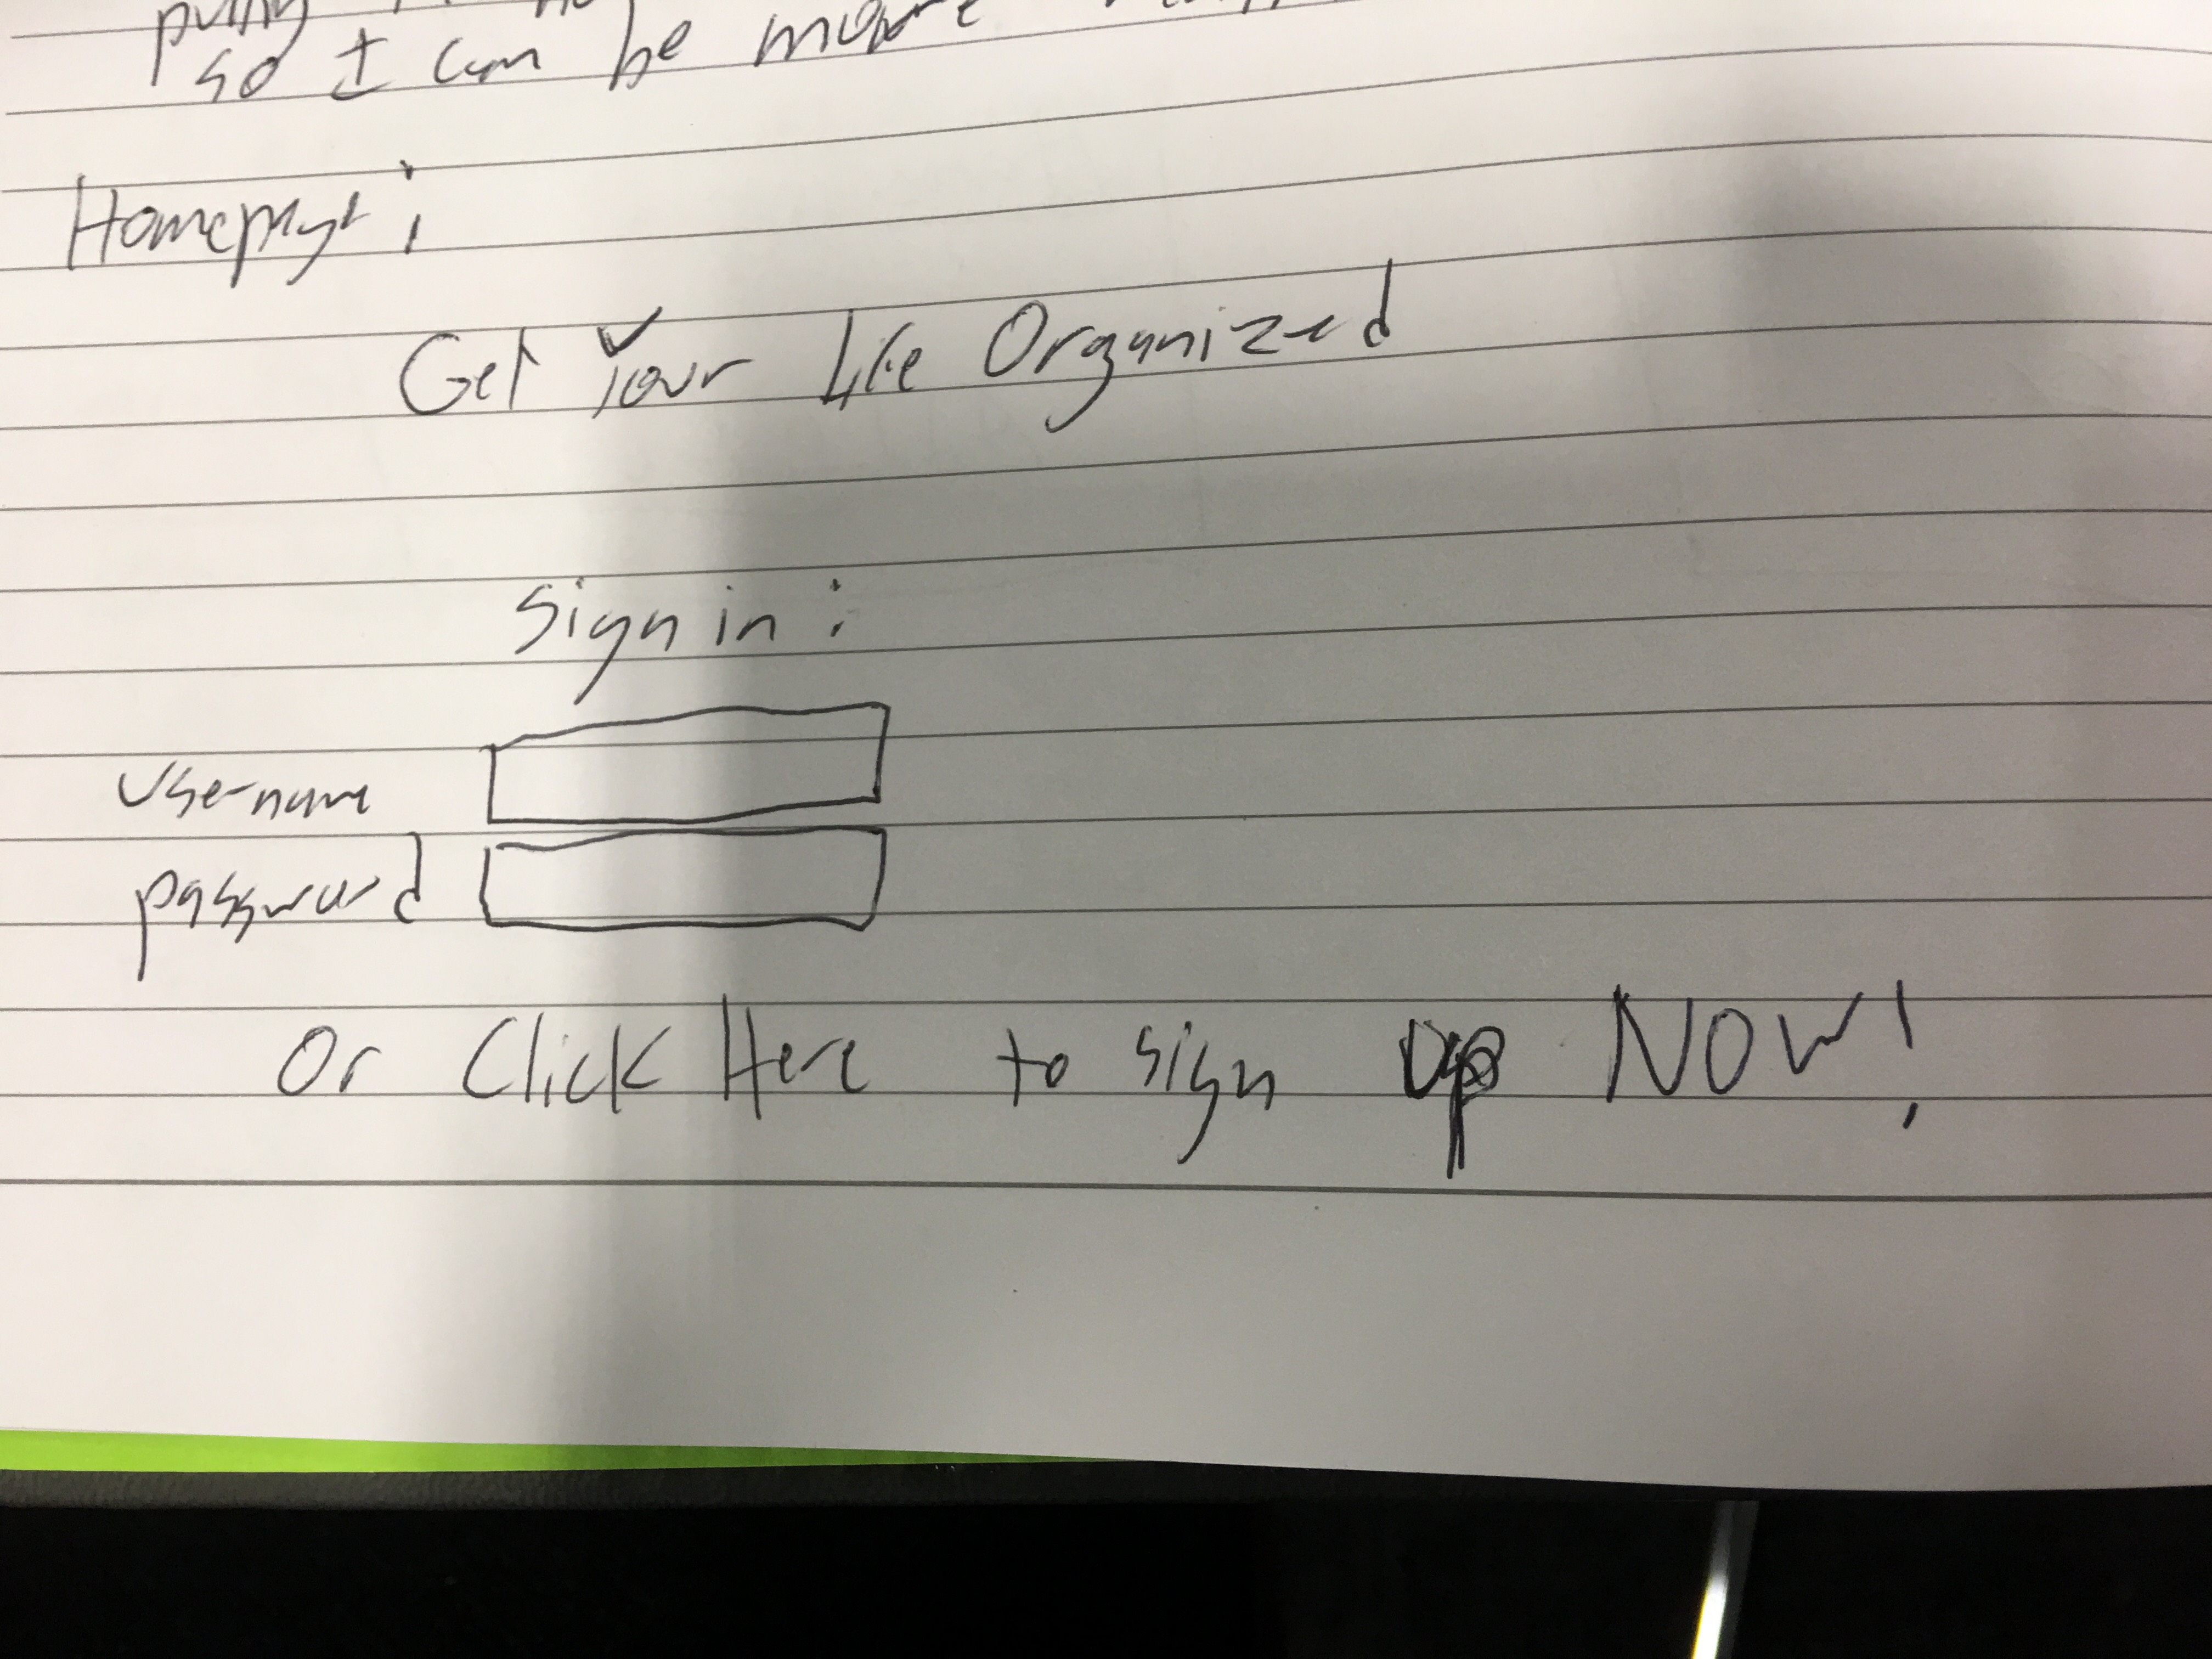 so I can be more
Homepage:
Get Your Life Organized
Sign in:
Username
password
Or Click Here to sign up NOW!